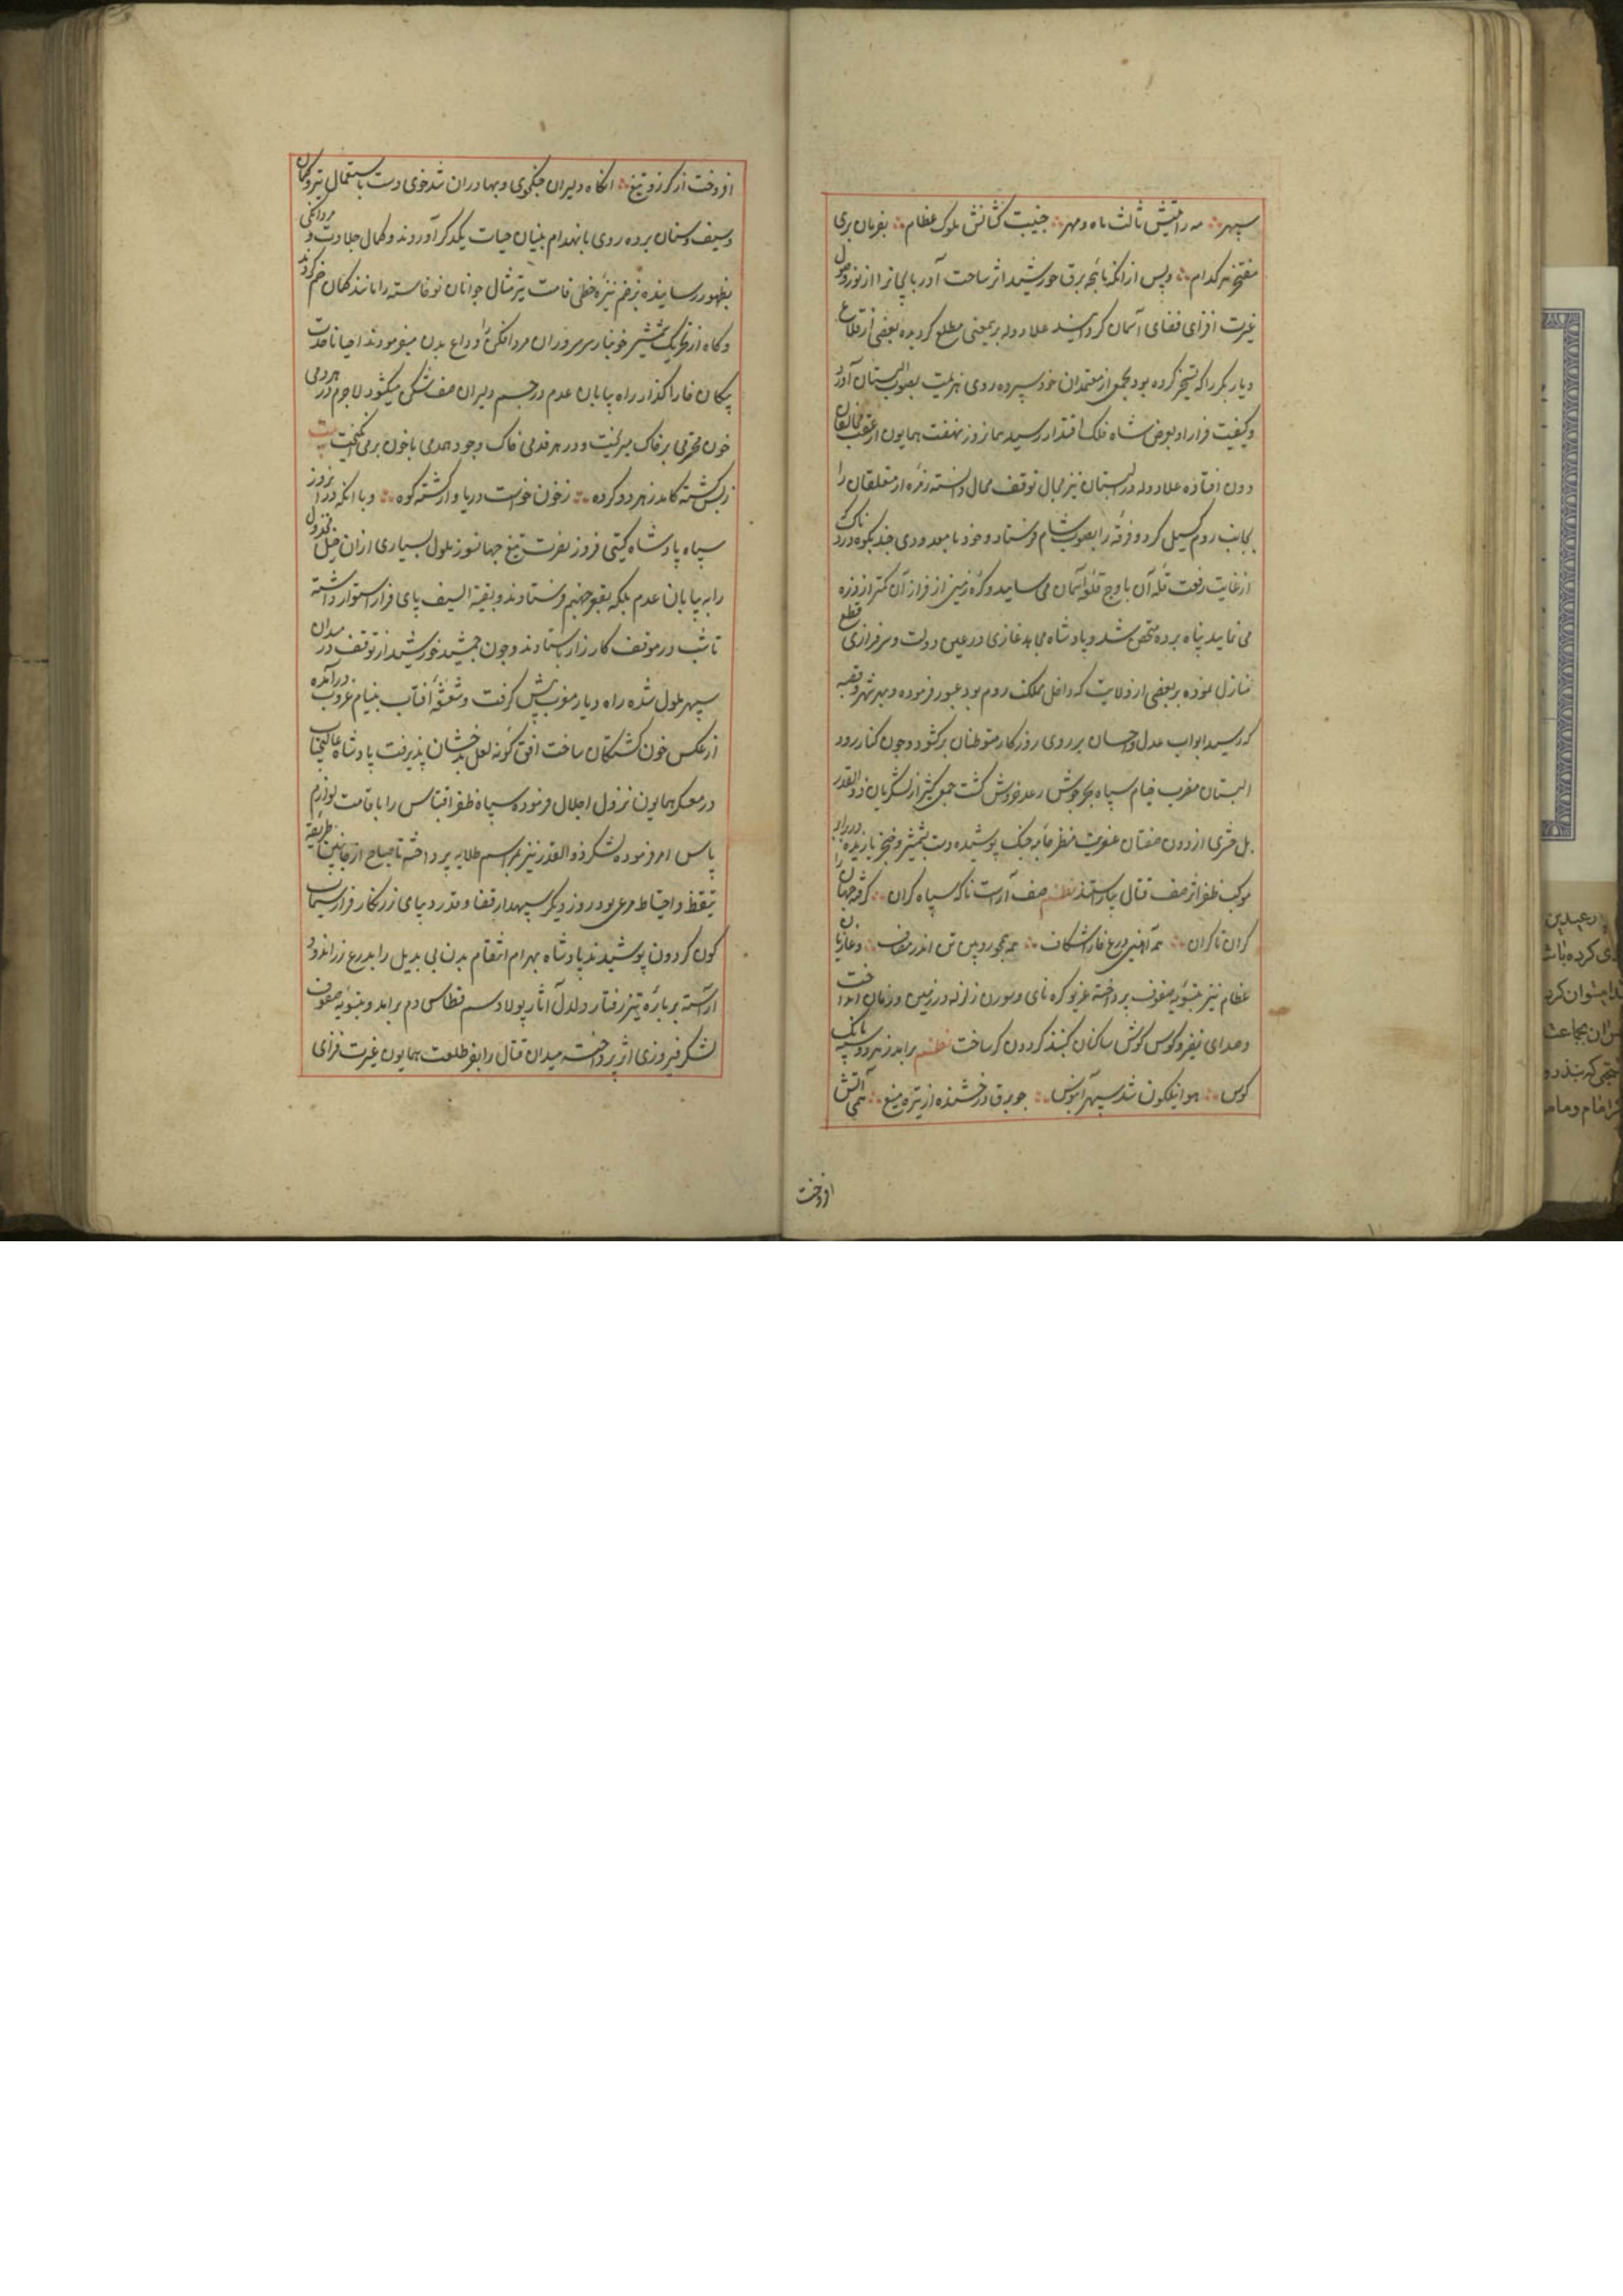 سپهر مه رایتش ثالث ماه و مهر جنیبت کشانش ملوک عظام بفرمان بری
مفتخر هر کدام و پس از انکه ماهچه برق خورشید اثر ساحت آذربایجانرا از نور وصول
غیرت افزای فضای آسمان کردانید علاء دوله برینمعنی مطلع کردیده بعضی از قلاع
دیار بکر را که تسخیر کرده بود بجمعی از معتمدان خود سپرده روی هزیمت بصوب البستان آورد
و کیفیت فرار او بعرض شاه فلک اقتدار رسید هما نروز نهضت همایون از عقب مخالفان
دون افتاده علاء دوله در البستان نیز مجال توقف محال دانسته زمره از متعلقان را
بجانب روم کسیل کرد و فرقه را بصوب شام فرستاد و خود با معدودی چند بکوه درنا که
از غایت رفعت قله آن باوج قله آسمان می ساید و کره زمین از فراز آن کمتر از ذره
می نماید پناه برده متحصن شد و پادشاه مجاهد غازی در عین دولت و سرفرازی قطع
منازل نموده بر بعضی از ولایت که داخل مملکت روم بود عبور فرموده و بهر شهر و قصبه
که رسید ابواب عدل و احسان بر روی روزکار متوطنان برکشود و چون کنار رود
البستان مضرب خیام سپاه بحر جوش رعد خروش کشت جمعی کثیر از لشکریان ذو القدر
بل حشری از دون صفتان عفریت منظر جامه جنک پوشیده دست بشمشیر و خنجر یازیده در برابر
موکب ظفر اثر صف قتال بیاراستند نظم صف آراست ناکه سپاه کران کرفته جهان را
کران تا کران همه آهنین درع خارا شکاف همه تن اندر مصاف و غازیان
عظام نیز بتسویه صفوف پرداخته غریو کره نای و سورن زلزله در زمین و زمان انداخت
و صدای نفیر و کوس کوش ساکنان کنبذ کردون کر ساخت نظم برامد ز هر دو سپه بانک
کوس هوا نیلکون شد سپهر آبنوس چو برق درخشنده از تیره میغ همی آتش
افروخت
افروخت از کرز و تیغ انکاه دلیران جنکجوی و بهادران تندخوی دست باستعمال تیر و کمان
و سیف و سنان برده روی بانهدام بنیان حیات یکدکر آوردند و کمال جلادت و مردانکی
بظهور رسانیده بزخم نیزه خطی قامت تیر مثال جوانان نو خاسته را مانند کمان خم کردند
و کاه از تحریک شمشیر خونبار سر سروران مرد افکن را وداع بدن میفرمودند احیانا حدت
پیکان خارا کذار راه بیابان عدم در جسم دلیران صف شکن میکشود لاجرم در هر دمی
خون محترمی بر خاک میریخت و در هر قدمی خاک وجود همدمی با خون برمی آمیخت بیت
ز بس کشته کامد ز هر دو کروه ز خون خواست دریا و از کشته کوه و با انکه در آنروز
سپاه پادشاه کیتی فروز بضرب تیغ جهانسوز ملول بسیاری از ان خیل مخذول
را به بیابان عدم بلکه بقعر جهنم فرستادند و بقیة السیف پای قرار استوار داشته
تا شب در موقف کارزار بایستادند و چون جمشید خورشید از توقف در میدان
سپهر ملول شده راه دیار مغرب پیش کرفت و شعشعه آفتاب بنیام غروب درآمده
از عکس خون کشتکان ساحت افق کونه لعل بدخشان پذیرفت پادشاه عالیجناب
در معسکر همایون نزول اجلال فرموده سپاه ظفر اقتباس را باقامت لوازم
پاس امر فرموده لشکر ذو القدر نیز بمراسم طلایه پرداخته تا صباح از جانبین طریقه
تیقظ و احتیاط مرعی بود روز دیکر سپهدار قضا و قدر دیبای زرنکار فراز سیماب
کون کردون پوشیدند پادشاه بهرام انتقام بدن بی بدیل را بدرع زراندود
آراسته بر باره تیز رفتار دلدل آثار پولاد سم قطاس دم برامد و بتسویه صفوف
لشکر فیروزی اثر پرداخته میدان قتال را بفر طلعت همایون غیرت فزای